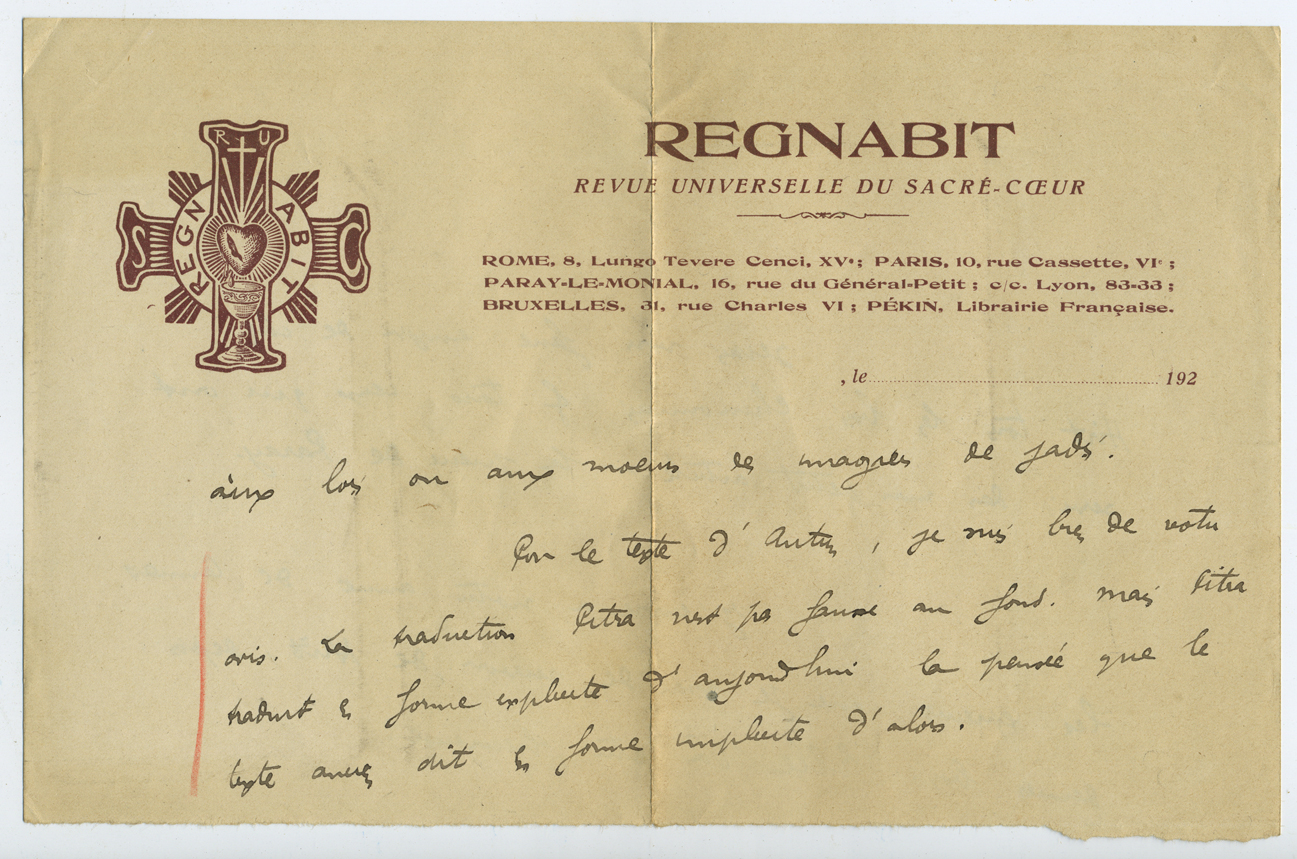 R U
S REGNABIT C
REGNABIT
REVUE UNIVERSELLE DU SACRÉ-CŒUR
ROME, 8, Lungo Tevere Cenci, XVe; PARIS, 10, rue Cassette, VIe;
PARAY-LE-MONIAL, 16, rue du Général-Petit; c/c. Lyon, 83-33;
BRUXELLES, 31, rue Charles VI; PÉKIN, Librairie Française.
, le 192
aux lois ou aux moeurs des imagiers de jadis.
Pour le texte d'Autun, je suis bien de votre
avis. La traduction Pitra n'est pas fausse au fond. Mais Pitra
traduit en forme explicite d'aujourd'hui la pensée que le
texte ancien dit en forme implicite d'alors.